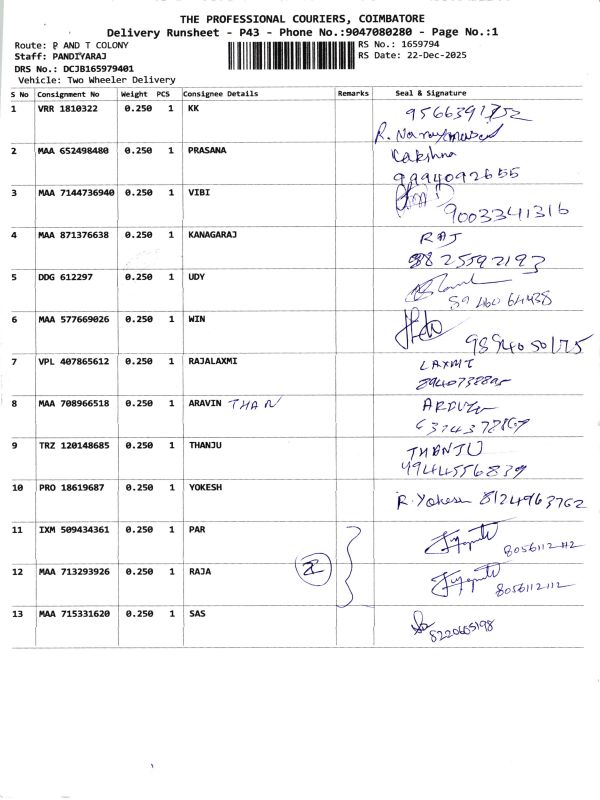 THE PROFESSIONAL COURIERS, COIMBATORE
Delivery Runsheet - P43 - Phone No.:9047080280 - Page No.:1
Route: P AND T COLONY
RS No.: 1659794
Staff: PANDIYARAJ
RS Date: 22-Dec-2025
DRS No.: DCJB165979401
Vehicle: Two Wheeler Delivery
S No Consignment No Weight PCS Consignee Details Remarks Seal & Signature
1 VRR 1810322 0.250 1 KK
R.
2 MAA 652498480 0.250 1 PRASANA
9994092655
3 MAA 7144736940 0.250 1 VIBI
9003341316
4 MAA 871376638 0.250 1 KANAGARAJ RAJ
9825592193
5 DDG 612297 0.250 1 UDY
6 MAA 577669026 0.250 1 WIN
9894050175
7 VPL 407865612 0.250 1 RAJALAXMI LAXMI
8 MAA 708966518 0.250 1 ARAVIN THAN
9 TRZ 120148685 0.250 1 THANJU THANJU
9944556839
10 PRO 18619687 0.250 1 YOKESH R. Yokesh 8124963762
11 IXM 509434361 0.250 1 PAR
8056112112
12 MAA 713293926 0.250 1 RAJA 2
8056112112
13 MAA 715331620 0.250 1 SAS
8220605198